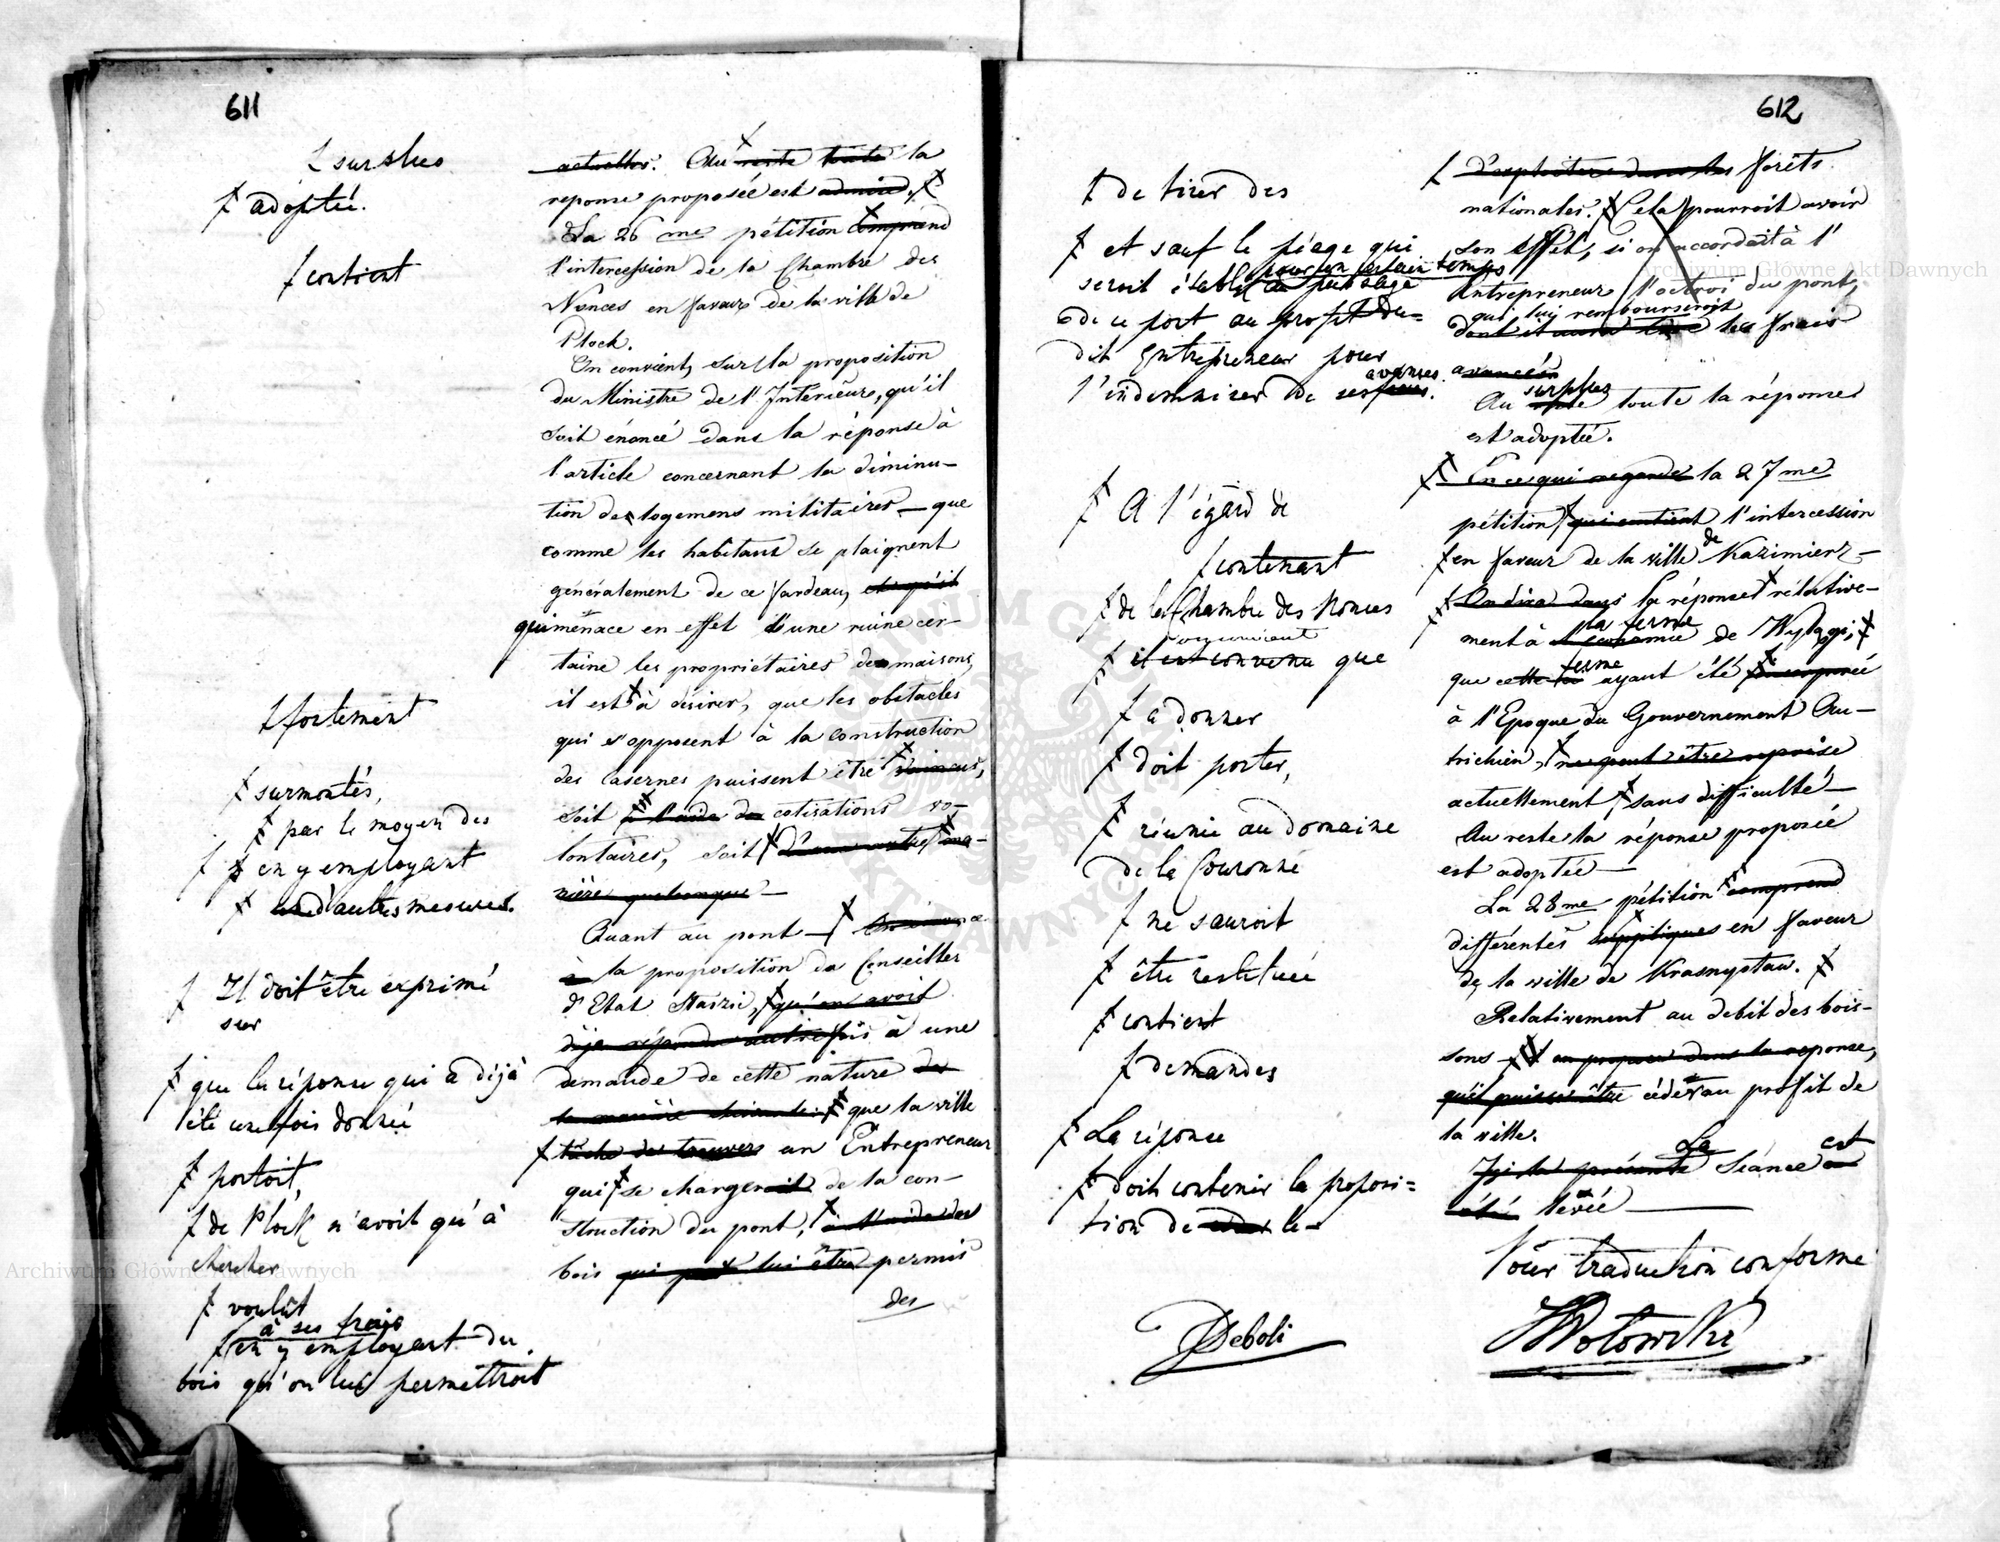 611
ƚ surplus
ƚ adoptée.
ƚ contient
ƚ fortement
ƚ surmontés,
ƚ par le moyen des
ƚ ƚ en y employant
ƚ d'autres mesures.
ƚ Il doit être exprimé
sur
ƚ que la réponse qui a déjà
été une fois donnée
ƚ portoit,
ƚ de Plock n'avoit qu'à
chercher
ƚ voulût
à ses frais
ƚ en y employant du
bois qu'on lui permettroit
actuelles. Au reste toute la
reponse proposée est admise.
La 26 me pétition comprend
l'intercession de la Chambre des
Nonces en faveur de la ville de
Plock.
On convient, sur la proposition
du Ministre de l'Interieure, qu'il
soit énoncé dans la réponse à
l'article concernant la diminu-
tion des logemens militaires — que
comme les habitans se plaignent
généralement de ce fardeau, et qu'il
qui menace en effet d'une ruine cer-
taine les propriétaires des maisons,
il est à désirer, que les obstacles
qui s'opposent à la construction
des casernes puissent être vaincus,
soit à l'aide de cotisations vo-
lontaires, soit d'une autre ma-
nière quelconque —
Quant au pont —
à la proposition du Conseiller
d'Etat Staszic, qu'on avoit
déja répondu autrefois à une
demande de cette nature de
la manière suivante: que la ville
tâche de trouver un Entrepreneur
qui se chargeroit de la con-
struction du pont, à l'aide des
bois qui peut lui être permis
des
612
ƚ de tirer des
ƚ et sauf le péage qui
pour un certain temps
seroit établi au passage
de ce port au profit du=
dit Entrepreneur pour
avances.
l'indemniser de ses frais.
ƚ A l'égard de
ƚ contenant
ƚ de la Chambre des Nonces
on convient
ƚ il est convenu que
ƚ a donner
ƚ doit porter,
ƚ réunie au domaine
de la Couronne
ƚ ne sauroit
ƚ être restituée
ƚ contient
ƚ demandes
ƚ La réponse
ƚ doit contenir la proposi=
tion de le-
Deboli
ƚ d'exploiter dans les forêts
nationales. Cela pourroit avoir
son effet, si on accordait à l'
Entrepreneur l'octroi du pont,
qui lui rembourseroit
dont il auroit les frais
avancés
surplus
Au reste toute la réponse
est adoptée.
En ce qui regarde la 27 me
pétition qui contient l'intercession
ƚ en faveur de la ville de Kazimierz —
On dira dans la réponse rélative-
la ferme
ment à l'economie de Wylągi,
ferme
que cette ayant été incorporée
à l'Epoque du Gouvernement Au-
trichien, ne peut être reprise
actuellement sans difficulté —
Au reste la réponse proposée
est adoptée —
La 28 me pétition comprend
différentes suppliques en faveur
de la ville de Krasnystaw.
Relativement au debit des bois-
sons — on propose dans la reponse,
qu'il puisse être céder au profit de
la ville.
La est
Ici la présente Séance a
été levée —
Pour traduction conforme
Wołowski